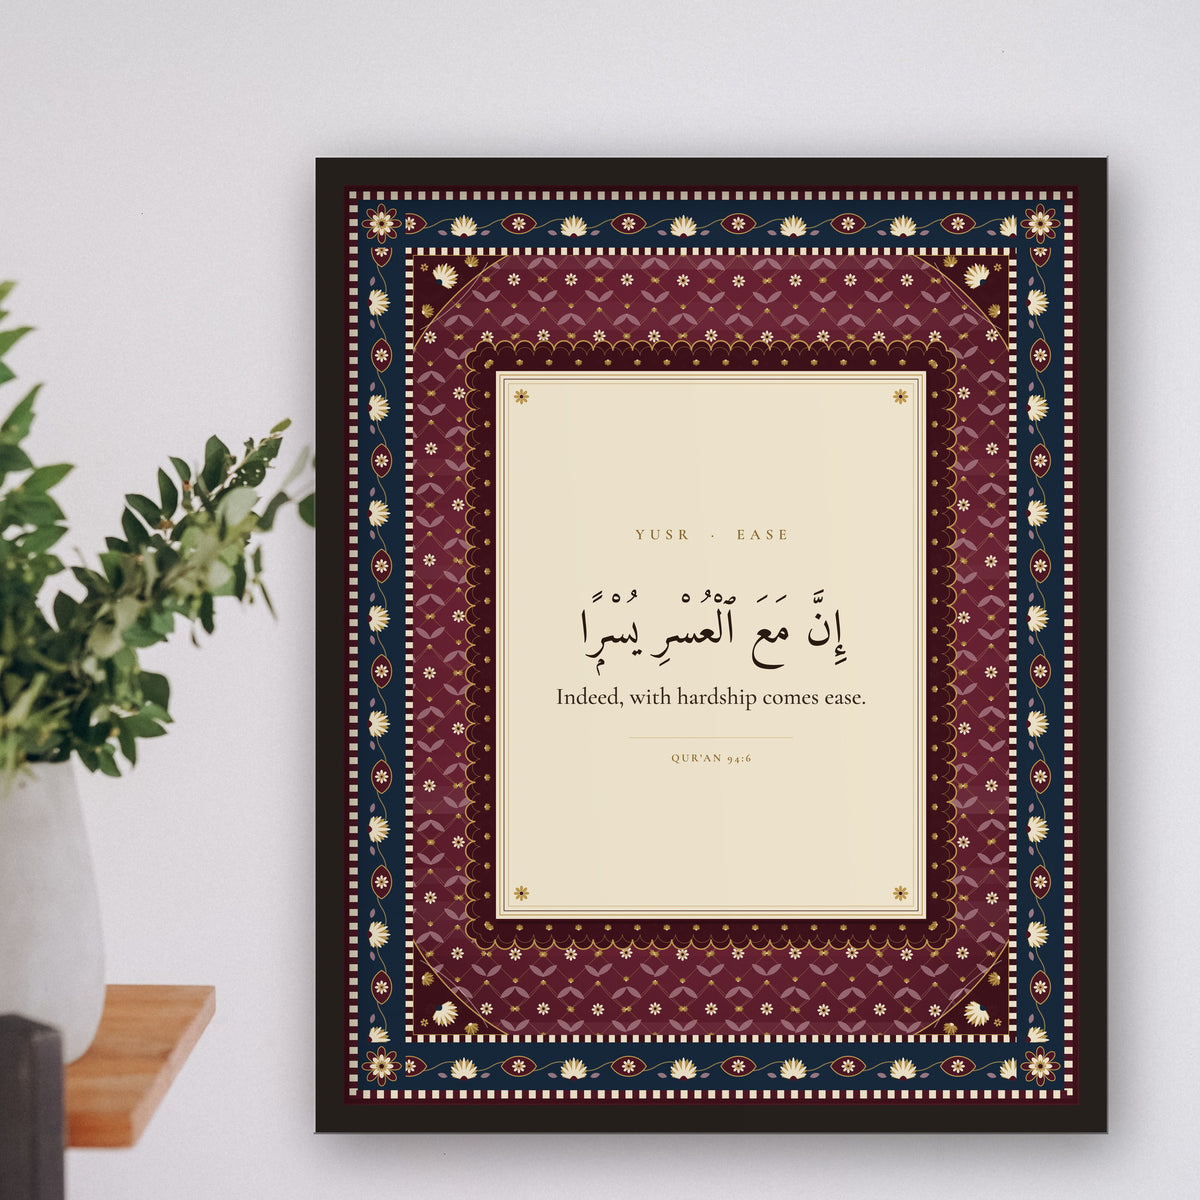 YUSR · EASE
إِنَّ مَعَ ٱلْعُسْرِ يُسْرًۭا
Indeed, with hardship comes ease.
QUR'AN 94:6